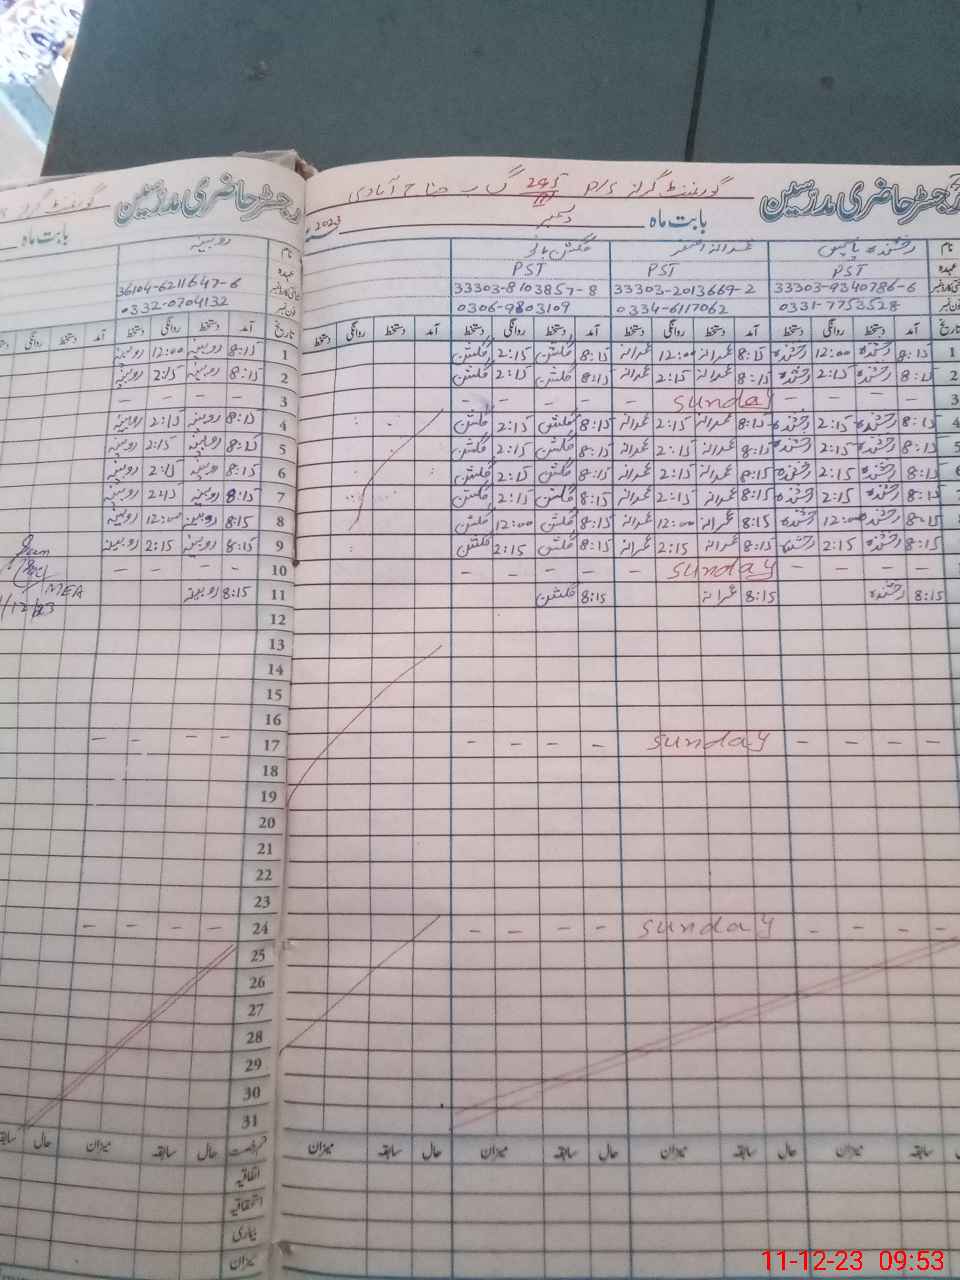 رجسٹر حاضری مدرسین
گورنمنٹ گرلز P/S 295 گ ب جناح آبادی
بابت ماہ دسمبر 2023
نام رخشندہ یاسمین عمرانہ اصغر گلشن بانو
عہدہ PST PST PST
33303-9340786-6 33303-2013669-2 33303-8103857-8
فون نمبر 0331-7753528 0334-6117062 0306-9803109
تاریخ آمد دستخط روانگی دستخط آمد دستخط روانگی دستخط آمد دستخط روانگی دستخط آمد دستخط روانگی دستخط
1 8:15 رخشندہ 12:00 رخشندہ 8:15 عمرانہ 12:00 عمرانہ 8:15 گلشن 2:15 گلشن
2 8:15 رخشندہ 2:15 رخشندہ 8:15 عمرانہ 2:15 عمرانہ 8:15 گلشن 2:15 گلشن
3 - - - - sunday - - - -
4 8:15 رخشندہ 2:15 رخشندہ 8:15 عمرانہ 2:15 عمرانہ 8:15 گلشن 2:15 گلشن
5 8:15 رخشندہ 2:15 رخشندہ 8:15 عمرانہ 2:15 عمرانہ 8:15 گلشن 2:15 گلشن
6 8:15 رخشندہ 2:15 رخشندہ 8:15 عمرانہ 2:15 عمرانہ 8:15 گلشن 2:15 گلشن
7 8:15 رخشندہ 2:15 رخشندہ 8:15 عمرانہ 2:15 عمرانہ 8:15 گلشن 2:15 گلشن
8:15 رخشندہ 12:00 رخشندہ 8:15 عمرانہ 12:00 عمرانہ 8:15 گلشن 12:00 گلشن
8:15 رخشندہ 2:15 رخشندہ 8:15 عمرانہ 2:15 عمرانہ 8:15 گلشن 2:15 گلشن
- - - - sunday - - - -
8:15 رخشندہ 8:15 عمرانہ 8:15 گلشن
- - - - sunday - - - -
- - - - sunday - - - -
سابقہ میزان حال سابقہ میزان حال سابقہ میزان حال سابقہ میزان
رجسٹر حاضری مدرسین
گورنمنٹ گرلز
بابت ماہ
نام روبینہ
عہدہ
36104-6211647-6
فون نمبر 0332-0704132
تاریخ آمد دستخط روانگی دستخط آمد دستخط روانگی
1 8:15 روبینہ 12:00 روبینہ
2 8:15 روبینہ 2:15 روبینہ
3 - - - -
4 8:15 روبینہ 2:15 روبینہ
5 8:15 روبینہ 2:15 روبینہ
6 8:15 روبینہ 2:15 روبینہ
7 8:15 روبینہ 2:15 روبینہ
8 8:15 روبینہ 12:00 روبینہ
9 8:15 روبینہ 2:15 روبینہ
10 - - - -
MEA
11 8:15 روبینہ
/12/23
12
13
14
15
16
17 - - - -
18
19
20
21
22
23
24 - - - -
25
26
27
28
29
30
31
حال سابقہ میزان حال سابقہ
اتفاقیہ
استحقاقیہ
بیماری
میزان
11-12-23 09:53